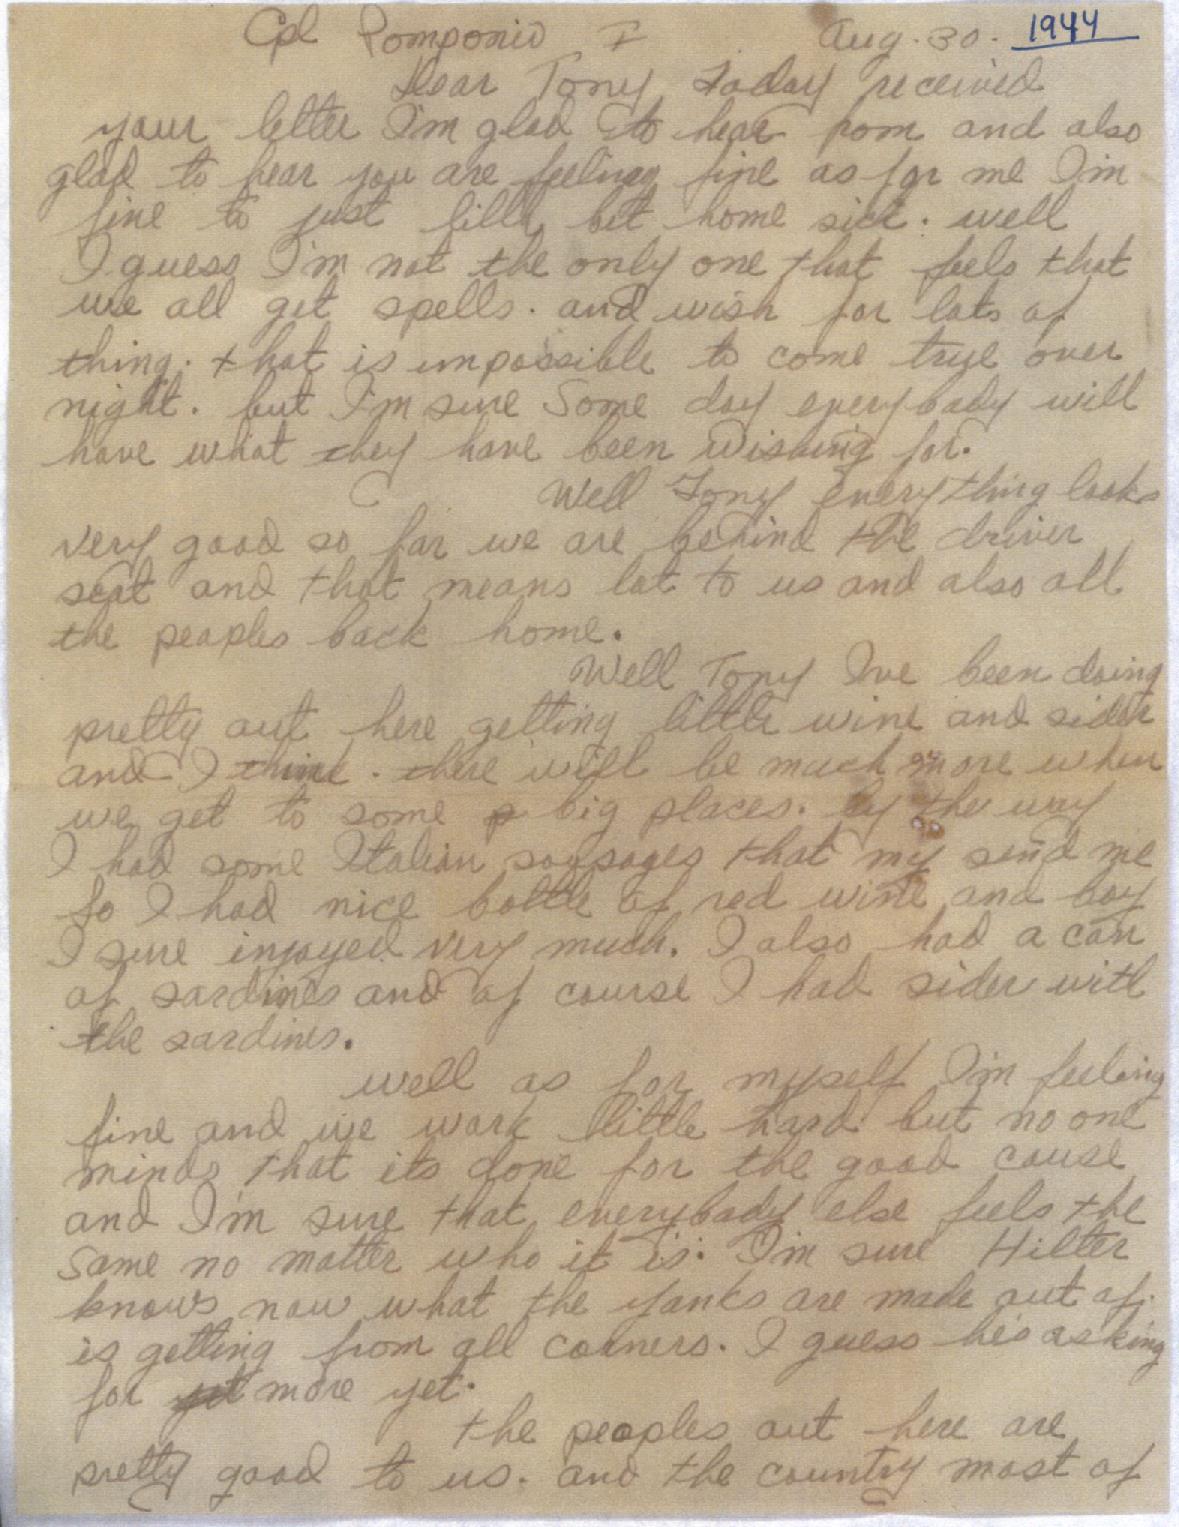 Cpl Pomponio I Aug. 30. 1944
Dear Tony Today received
your letter I'm glad to hear from and also
glad to hear you are feeling fine as for me I'm
fine to just little bit home sick. well
I guess I'm not the only one that feels that
we all get spells. and wish for lots of
thing. that is impossible to come true over
night. but I'm sure Some day everybody will
have what they have been wishing for.
Well Tony everything looks
very good so far we are behind the driver
seat and that means lot to us and also all
the peoples back home.
Well Tony I've been doing
pretty out here getting little wine and sider
and I think. there will be much more when
we get to some big places. by the way
I had some Italian sausages that my send me
so I had nice bottle of red wine and boy
I sure injoyed very much. I also had a can
of sardines and of course I had sider with
the sardines.
well as for myself I'm feeling
fine and we work little hard but no one
minds that its done for the good cause
and I'm sure that everybody else feels the
same no matter who it is. I'm sure Hilter
knows now what the yanks are made out of.
is getting from all corners. I guess he's asking
for yet more yet.
the peoples out here are
pretty good to us. and the country most of